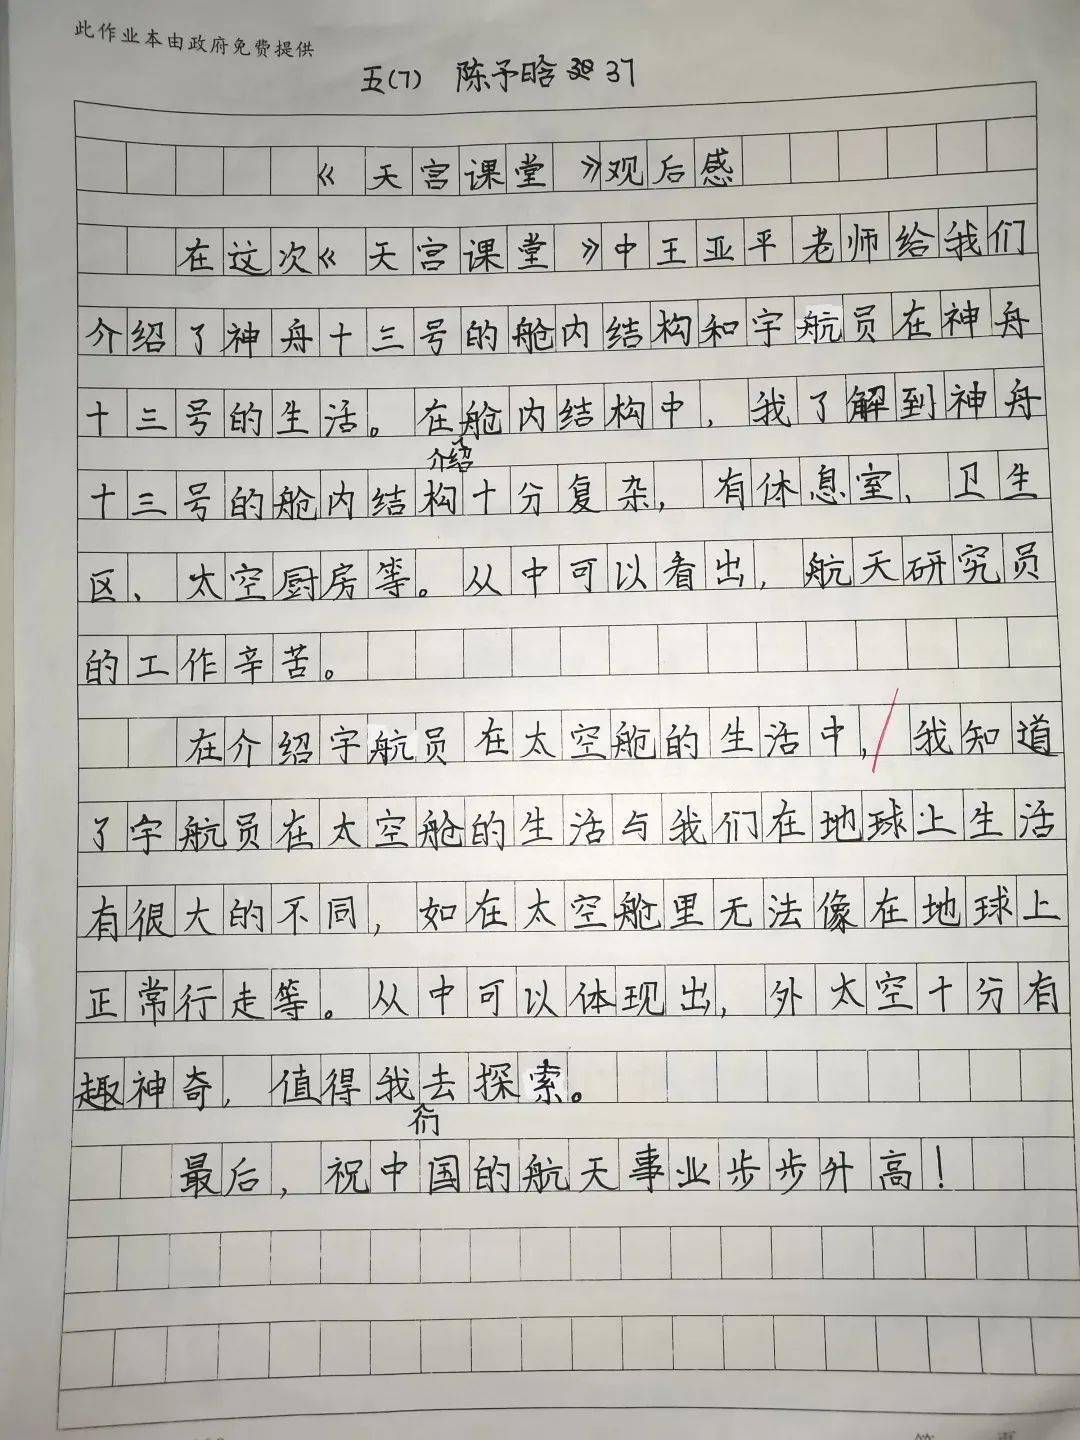 此作业本由政府免费提供
五(7) 陈予晗 37
《天宫课堂》观后感
在这次《天宫课堂》中王亚平老师给我们
介绍了神舟十三号的舱内结构和宇航员在神舟
十三号的生活。在舱内结构介绍中，我了解到神舟
十三号的舱内结构十分复杂，有休息室、卫生
区、太空厨房等。从中可以看出，航天研究员
的工作辛苦。
在介绍宇航员在太空舱的生活中，我知道
了宇航员在太空舱的生活与我们在地球上生活
有很大的不同，如在太空舱里无法像在地球上
正常行走等。从中可以体现出，外太空十分有
趣神奇，值得我们去探索。
最后，祝中国的航天事业步步升高！